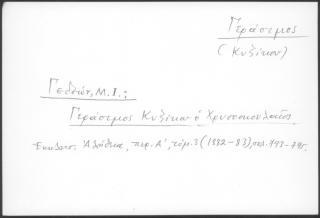 Γεράσιμος
(Κυζίκου)
Γεδεών, Μ. Ι.:
Γεράσιμος Κυζίκου ὁ Χρυσοσκουλαῖος.
Ἀλήθεια, περ. Α', τόμ. 3 (1882-83), σελ. 493-795.